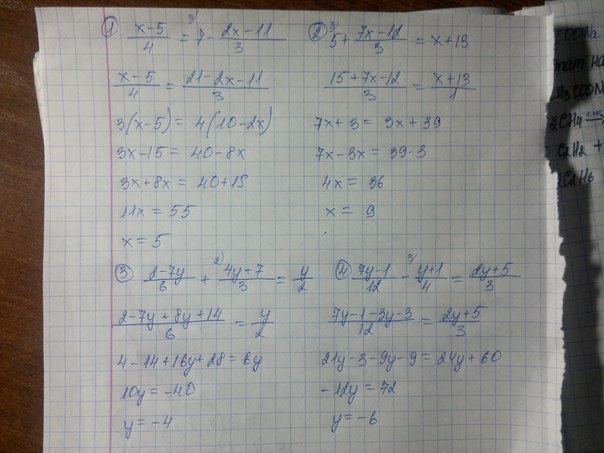 ① (x-5)/4 = ³⁾7 - (2x-11)/3
(x-5)/4 = (21-2x-11)/3
3(x-5) = 4(10-2x)
3x-15 = 40-8x
3x+8x = 40+15
11x = 55
x = 5
② ³⁾5 + (7x-12)/3 = x+13
(15+7x-12)/3 = (x+13)/1
7x+3 = 3x+39
7x-3x = 39-3
4x = 36
x = 9
③ (2-7y)/6 + ²⁾(4y+7)/3 = y/2
(2-7y+8y+14)/6 = y/2
4-14+16y+28=6y
10y = -40
y = -4
④ (7y-1)/12 - ³⁾(y+1)/4 = (2y+5)/3
(7y-1-3y-3)/12 = (2y+5)/3
21y-3-9y-9=24y+60
-12y = 72
y = -6
COONa
H3COON
2CH4
C2H2 +
C2H6